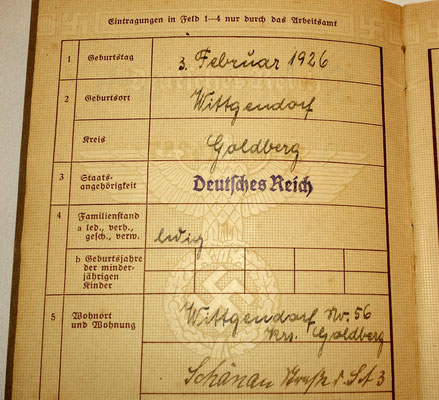 Eintragungen in Feld 1—4 nur durch das Arbeitsamt
1 Geburtstag 3. Februar 1926
2 Geburtsort Wittgendorf
Kreis Goldberg
3 Staats-
angehörigkeit Deutsches Reich
4 Familienstand
a led., verh.,
gesch., verw. ledig
b Geburtsjahre
der minder-
jährigen
Kinder
5 Wohnort
und Wohnung Wittgendorf Nr. 56
Krs. Goldberg
Schönau Straße d. SA 3